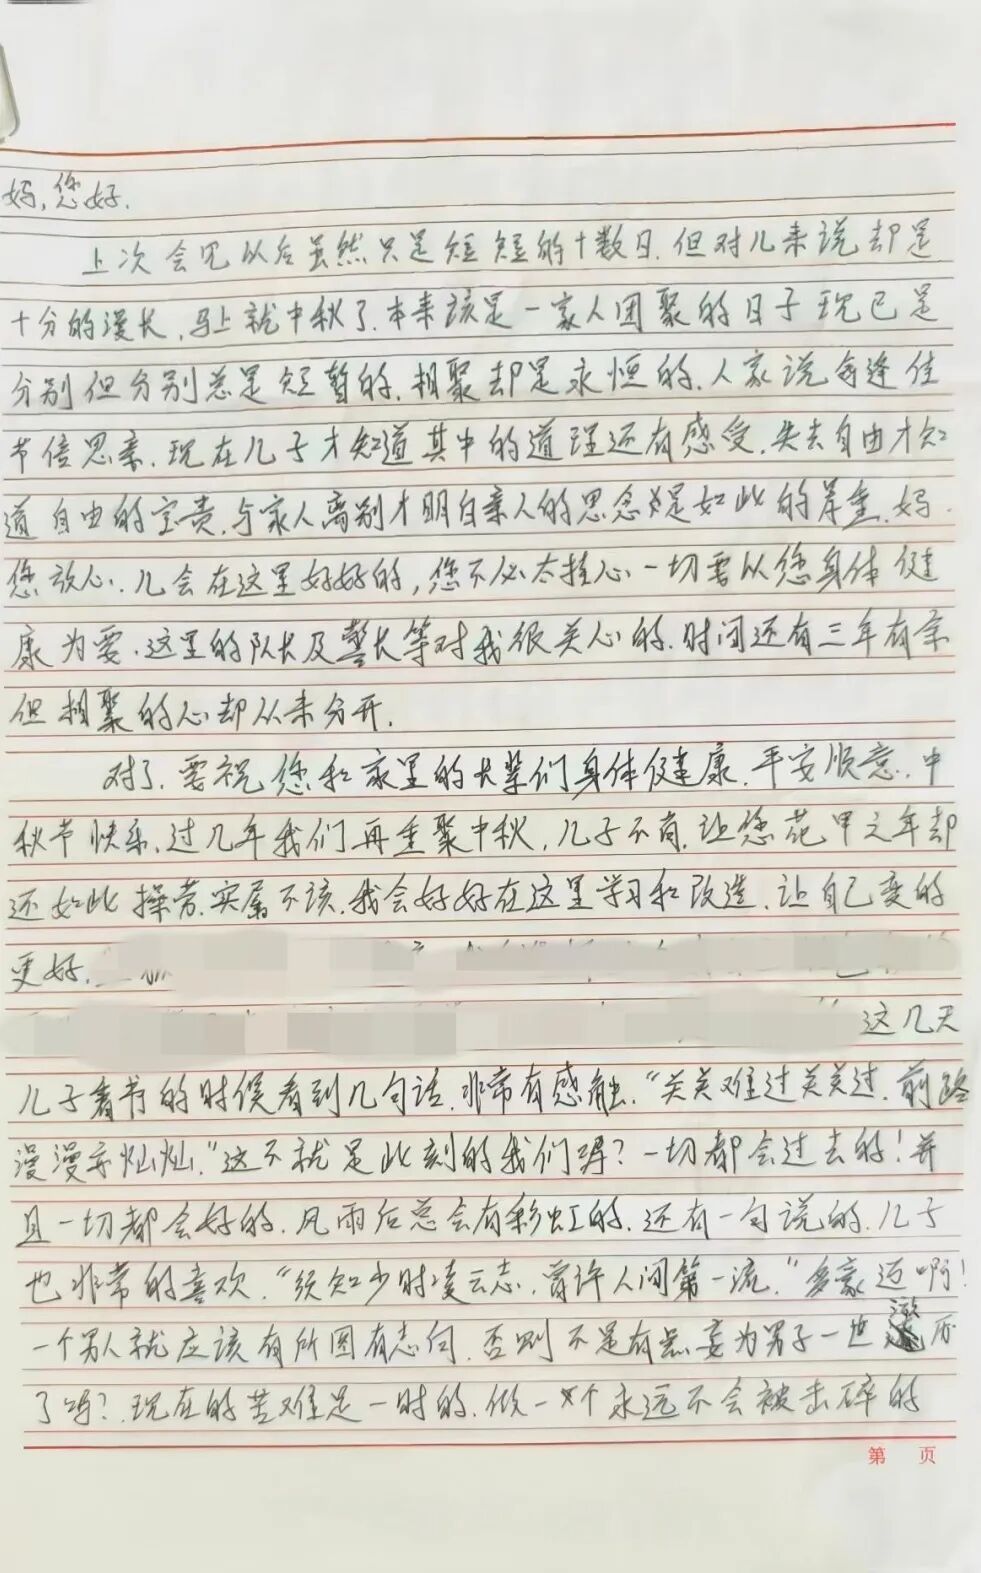 妈,您好.
上次会见以后虽然只是短短的十数日.但对儿来说却是
十分的漫长.马上就中秋了.本来该是一家人团聚的日子现已是
分别但分别总是短暂的.相聚却是永恒的.人家说每逢佳
节倍思亲.现在儿子才知道其中的道理还有感受.失去自由才知
道自由的宝贵.与家人离别才明白亲人的思念是如此的厚重.妈.
您放心.儿会在这里好好的,您不必太挂心一切要以您身体健
康为要.这里的队长及警长等对我很关心的.时间还有三年有余
但相聚的心却从未分开.
对了.要祝您和家里的长辈们身体健康.平安顺意.中
秋节快乐.过几年我们再重聚中秋.儿子不肖.让您花甲之年却
还如此操劳.实属不该.我会好好在这里学习和改造.让自己变的
更好.
这几天
儿子看书的时候看到几句话.非常有感触."关关难过关关过.前路
漫漫亦灿灿."这不就是此刻的我们嘛?一切都会过去的!并
且一切都会好的.风雨后总会有彩虹的.还有一句说的.儿子
也非常的喜欢."须知少时凌云志,曾许人间第一流."多豪迈啊!
一个男人就应该有所图有志向.否则不是有点妄为男子一世
了吗?现在的苦难是一时的.做一个永远不会被击碎的
第 页